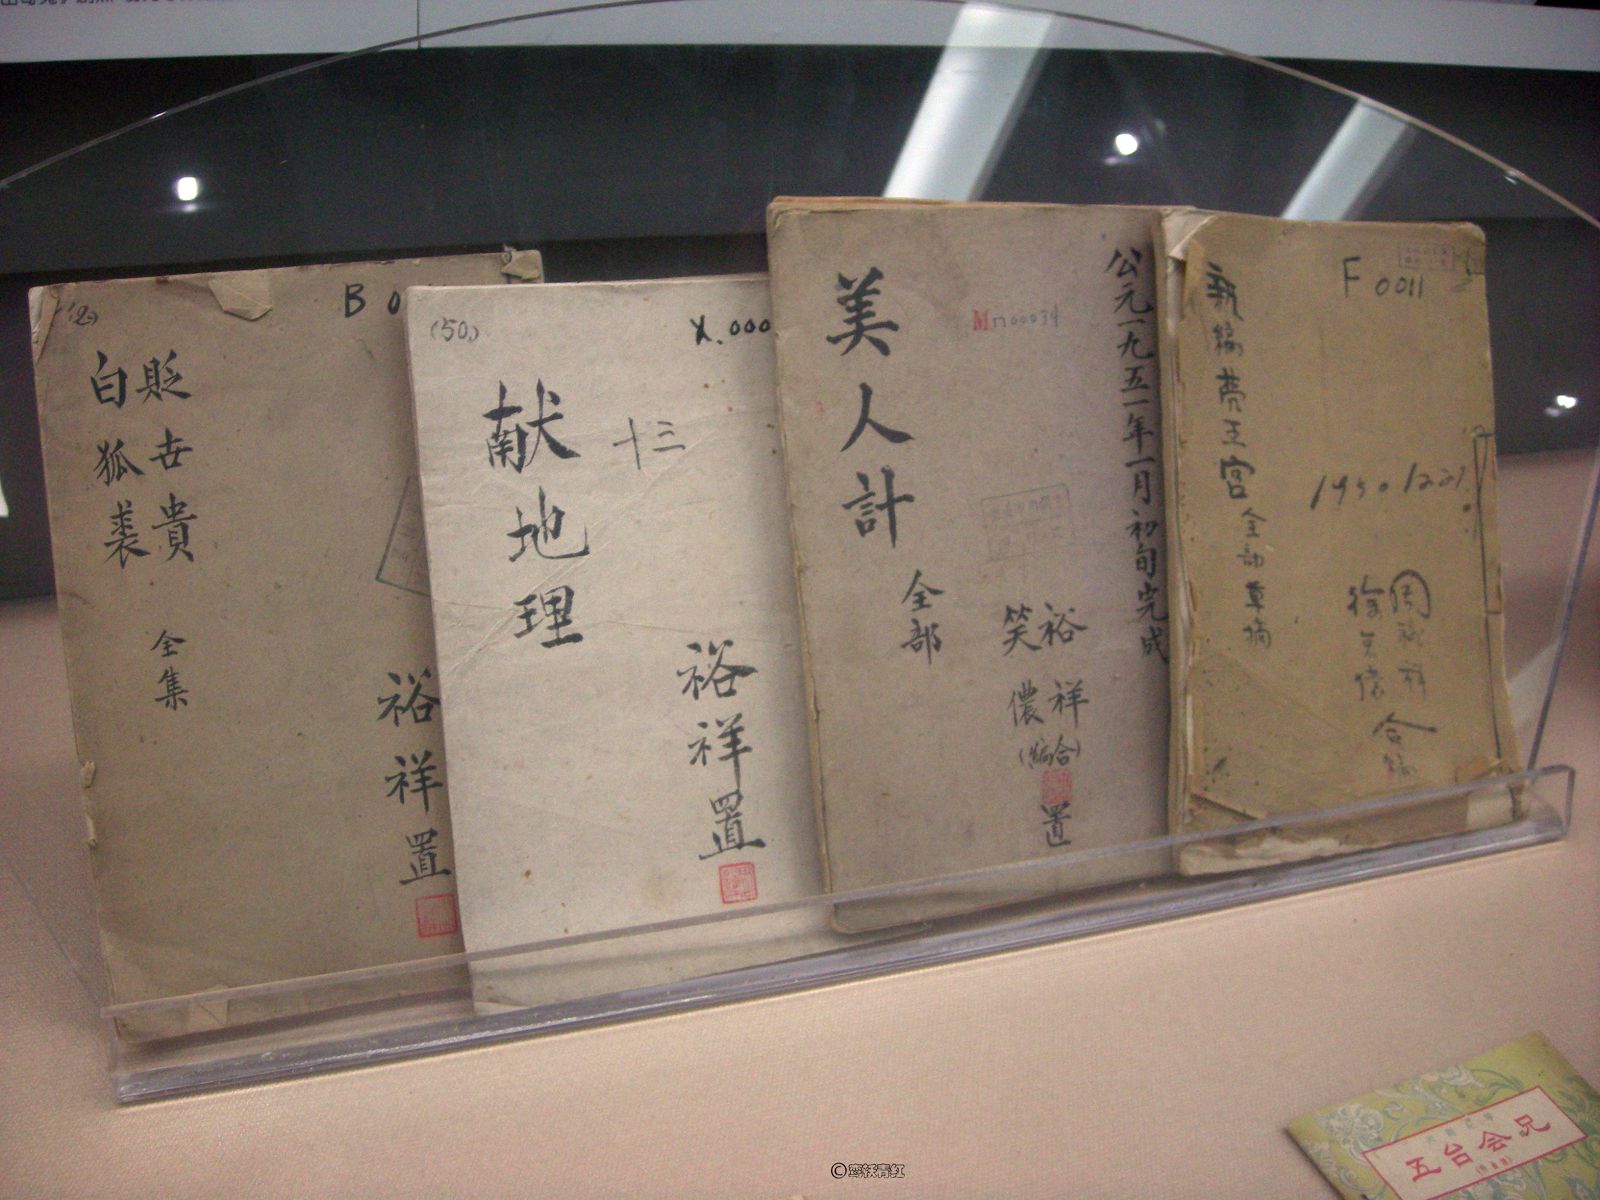 (12)
B 0
貶世貴
白狐裘
全集
裕祥置
(50)
X.000
献地理
十三
裕祥置
公元一九五一年一月初旬完成
Mn00034
美人计
全部
裕祥
笑儂
(合編)
置
F 0011
新编
王宫全部草摘
19501221
周裕祥
徐笑儂
合编
五台会兄